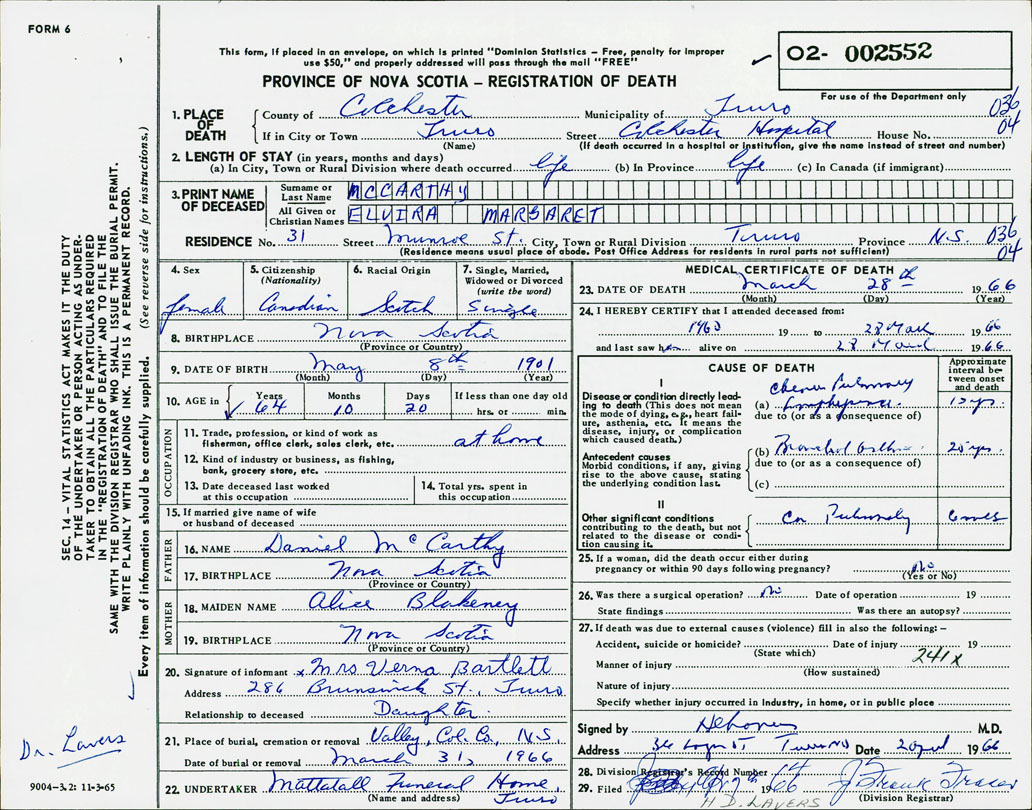 FORM 6
This form, if placed in an envelope, on which is printed "Dominion Statistics – Free, penalty for improper
use $50," and properly addressed will pass through the mail "FREE"
PROVINCE OF NOVA SCOTIA – REGISTRATION OF DEATH
O2- 002552
For use of the Department only
1. PLACE OF DEATH County of Colchester Municipality of Truro 036
If in City or Town Truro Street Colchester Hospital House No. 04
(Name) (If death occurred in a hospital or institution, give the name instead of street and number)
2. LENGTH OF STAY (in years, months and days)
(a) In City, Town or Rural Division where death occurred life (b) In Province life (c) In Canada (if immigrant)
3. PRINT NAME OF DECEASED Surname or Last Name MCCARTHY
All Given or Christian Names ELVIRA MARGARET
RESIDENCE No. 31 Street Munroe St. City, Town or Rural Division Truro Province N.S. 036
(Residence means usual place of abode. Post Office Address for residents in rural parts not sufficient) 04
4. Sex female
5. Citizenship (Nationality) Canadian
6. Racial Origin Scotch
7. Single, Married, Widowed or Divorced (write the word) Single
8. BIRTHPLACE Nova Scotia
(Province or Country)
9. DATE OF BIRTH May 8th 1901
(Month) (Day) (Year)
10. AGE in Years 64 Months 10 Days 20 If less than one day old hrs. or min.
OCCUPATION
11. Trade, profession, or kind of work as fisherman, office clerk, sales clerk, etc. at home
12. Kind of industry or business, as fishing, bank, grocery store, etc.
13. Date deceased last worked at this occupation
14. Total yrs. spent in this occupation
15. If married give name of wife or husband of deceased
FATHER
16. NAME Daniel McCarthy
17. BIRTHPLACE Nova Scotia
(Province or Country)
MOTHER
18. MAIDEN NAME Alice Blakeney
19. BIRTHPLACE Nova Scotia
(Province or Country)
20. Signature of informant x Mrs Verna Bartlett
Address 286 Brunswick St., Truro
Relationship to deceased Daughter
21. Place of burial, cremation or removal Valley, Col. Co., N.S.
Date of burial or removal March 31, 1966
22. UNDERTAKER Mattatall Funeral Home,
(Name and address) Truro
MEDICAL CERTIFICATE OF DEATH
23. DATE OF DEATH March 28th 1966
(Month) (Day) (Year)
24. I HEREBY CERTIFY that I attended deceased from:
1963 19 to 28 March 1966
and last saw her alive on 28 March 1966
CAUSE OF DEATH
Approximate interval between onset and death
I
Disease or condition directly leading to death (This does not mean the mode of dying, e.g., heart failure, asthenia, etc. It means the disease, injury, or complication which caused death.)
(a) Pulmonary Emphysema
due to (or as a consequence of)
Antecedent causes
Morbid conditions, if any, giving rise to the above cause, stating the underlying condition last.
(b) Bronchial Asthma 20 yrs.
due to (or as a consequence of)
(c)
II
Other significant conditions contributing to the death, but not related to the disease or condition causing it.
Cor Pulmonaly 6 mos
25. If a woman, did the death occur either during pregnancy or within 90 days following pregnancy? No
(Yes or No)
26. Was there a surgical operation? No Date of operation 19
State findings Was there an autopsy?
27. If death was due to external causes (violence) fill in also the following: –
Accident, suicide or homicide? Date of injury 19
(State which) 241x
Manner of injury
(How sustained)
Nature of injury
Specify whether injury occurred in Industry, in home, or in public place
Signed by M.D.
Address Truro NS Date 2 April 1966
28. Division Registrar's Record Number 14
29. Filed 1966 J. Frank Fraser
H D. LAVERS (Division Registrar)
SEC. 14 – VITAL STATISTICS ACT MAKES IT THE DUTY
OF THE UNDERTAKER OR PERSON ACTING AS UNDER-
TAKER TO OBTAIN ALL THE PARTICULARS REQUIRED
IN THE "REGISTRATION OF DEATH" AND TO FILE THE
SAME WITH THE DIVISION REGISTRAR WHO SHALL ISSUE THE BURIAL PERMIT.
WRITE PLAINLY WITH UNFADING INK. THIS IS A PERMANENT RECORD.
Every item of information should be carefully supplied. (See reverse side for instructions.)
Dr. Lavers
9004–3.2: 11-3-65